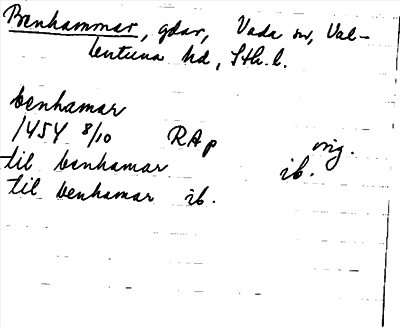 Benhammar, gdar, Vada sn, Val-
lentuna hd, Sth. l.
benhamar
1454 8/10 RAp orig.
til benhamar ib.
til benhamar ib.